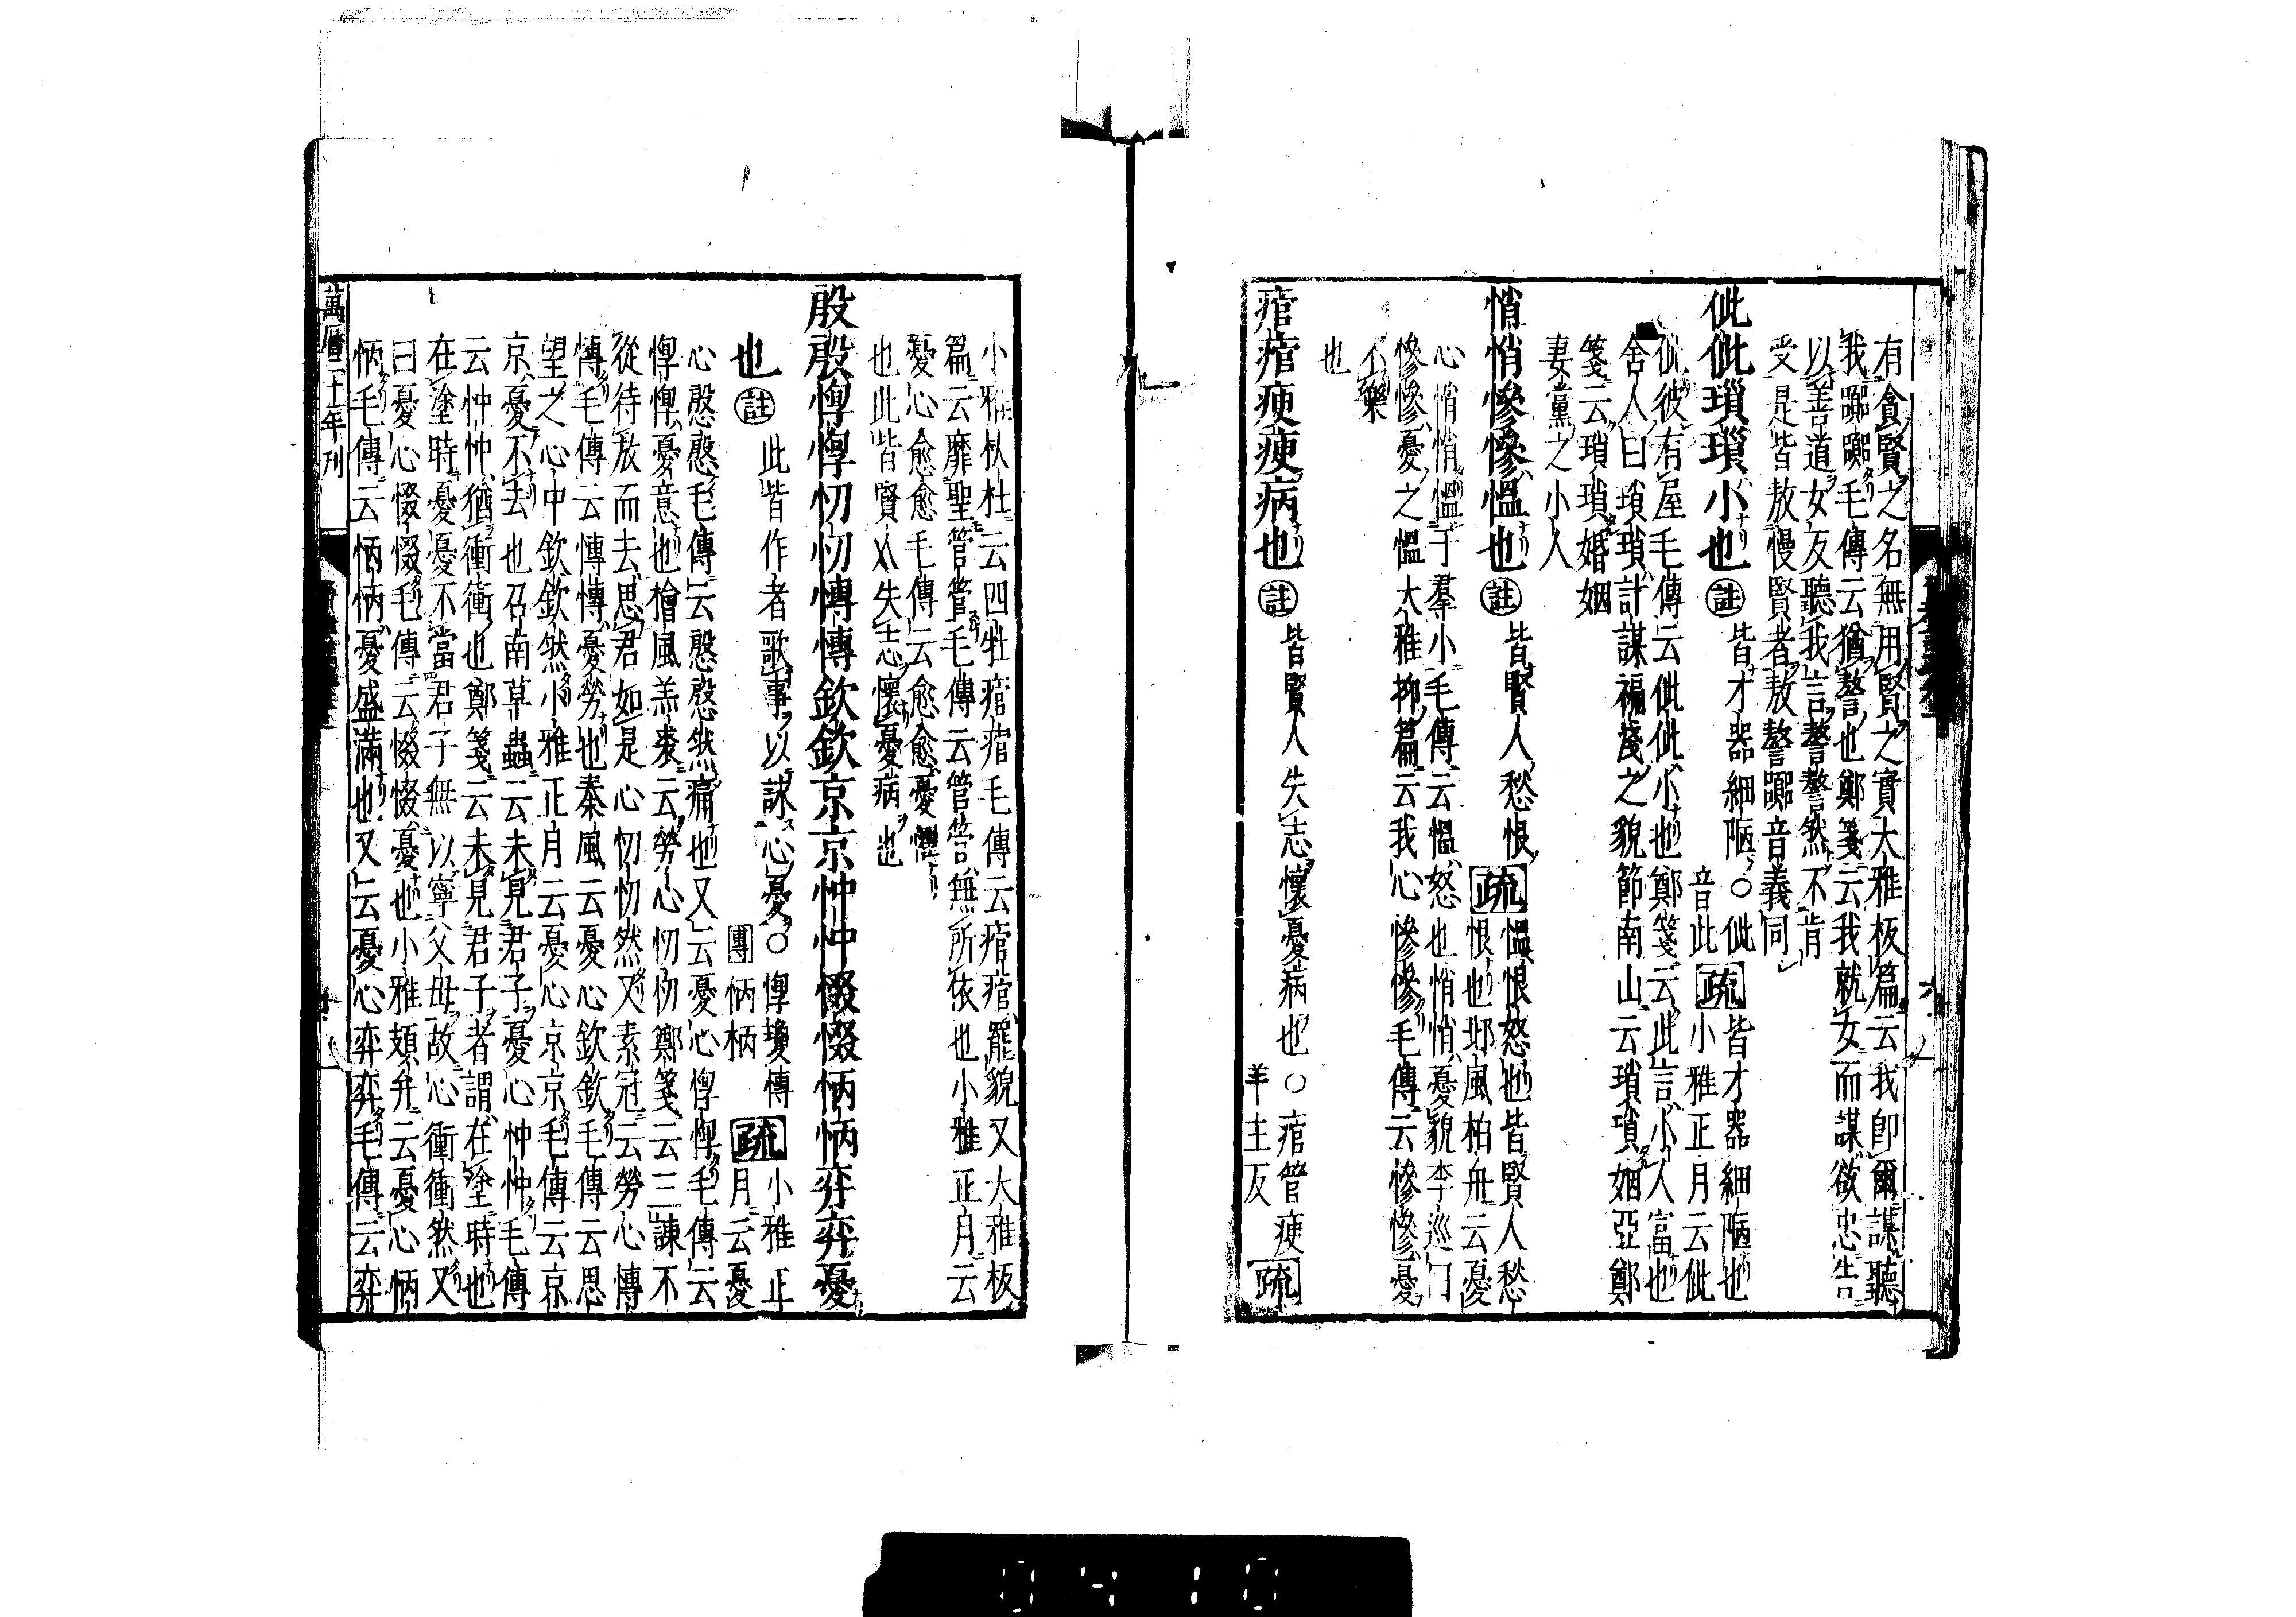 有貪賢之名無用賢之實大雅板篇云我即爾謀聽
我躑躑毛傳云猶警也鄭箋云我就女而謀欲忠告
以善道女反聽我言警警然不肯
受是皆敖慢賢者敖警躑音義同
佌佌瑣瑣小也 註 皆才器細陋〇佌音此 疏 皆才器細陋也
小雅正月云佌
佌彼有屋毛傳云佌佌小也鄭箋云此言小人富也
舍人曰瑣瑣計謀褊淺之貌節南山云瑣瑣姻亞鄭
箋云瑣瑣婚姻
妻黨之小人
悄悄慘慘慍也 註 皆賢人愁恨 疏 慍恨怒也皆賢人愁
恨也邶風柏舟云憂
心悄悄慍于羣小毛傳云慍怒也悄悄憂貌李巡曰
慘慘憂之慍大雅抑篇云我心慘慘毛傳云慘慘憂
不樂
也
痯痯瘐瘐病也 註 皆賢人失志懷憂病也〇痯管瘐
羊主反 疏
小雅杕杜云四牡痯痯毛傳云痯痯罷貌又大雅板
篇云靡聖管管毛傳云管管無所依也小雅正月云
憂心愈愈毛傳云愈愈憂懼
也此皆賢人失志懷憂病也
殷殷惸惸忉忉慱慱欽欽京京忡忡惙惙怲怲弈弈憂
也 註 此皆作者歌事以詠心憂〇惸瓊慱
團怲柄 疏 小雅正
月云憂
心慇慇毛傳云慇慇然痛也又云憂心惸惸毛傳云
惸惸憂意也檜風羔裘云勞心忉忉鄭箋云三諫不
從待放而去思君如是心忉忉然又素冠云勞心慱
慱毛傳云慱慱憂勞也秦風云憂心欽欽毛傳云思
望之心中欽欽然小雅正月云憂心京京毛傳云京
京憂不去也召南草蟲云未見君子憂心忡忡毛傳
云忡忡猶衝衝也鄭箋云未見君子者謂在塗時也
在塗時憂憂不當君子無以寧父母故心衝衝然又
曰憂心惙惙毛傳云惙惙憂也小雅頍弁云憂心怲
怲毛傳云怲怲憂盛滿也又云憂心弈弈毛傳云弈
萬曆二十一年刊
0410